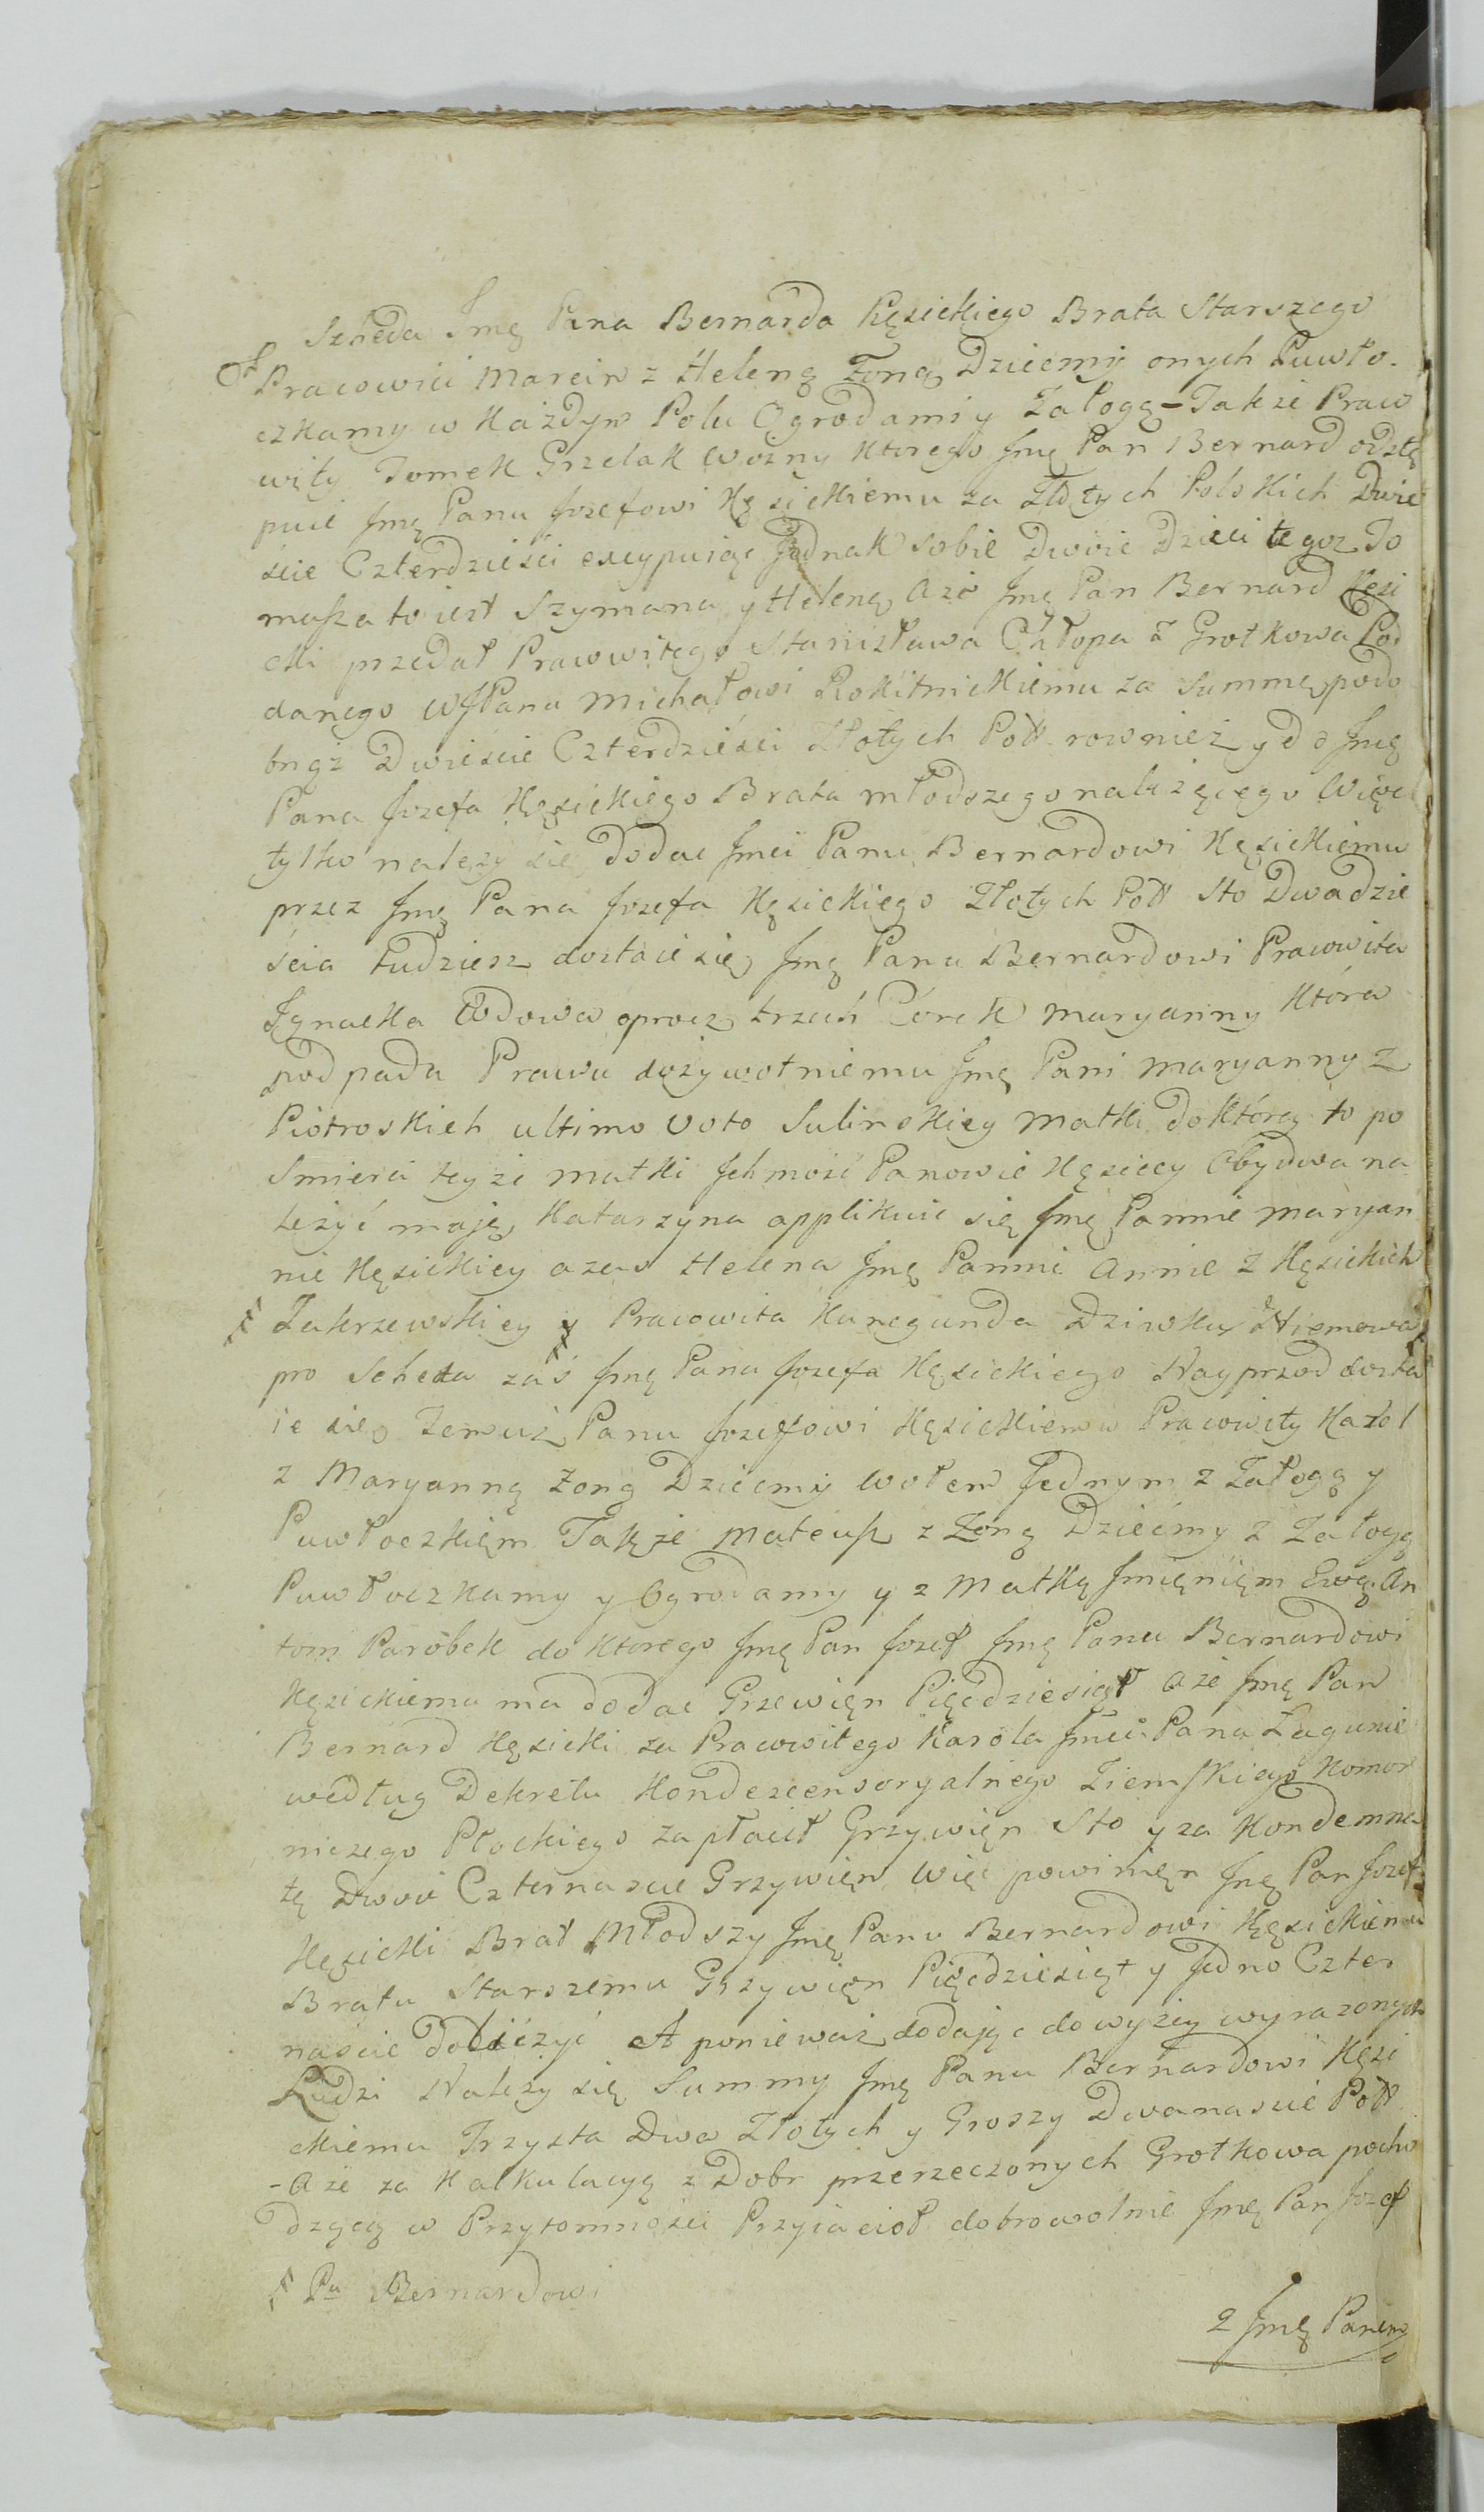 Scheda Jmę Pana Bernarda Kęsickiego Brata Starszego
Pracowici Marcin z Heleną Zoną Dziecmi onych Puwło-
czkamy w Każdym Polu Ogrodami y Załogą - Takze Praco
wity Tomek Grzelak Wozny Ktorego Jmę Pan Bernard odstę
puie Jmę Panu Jozefowi Kęsickiemu za Złotych Polskich Dwie
scie Czterdzieści excypuiąc Jednak sobie Dwoie Dzieci tegoz To
masza to iest Szymana y Helenę A że Jmę Pan Bernard Kęsi
cki przedał Pracowitego Stanisława Chłopa z Grotkowa Pod
danego WJPanu Michałowi Rokitnickiemu za Summę podo
bnąż Dwiescie Czterdzieści Złotych Poll. rownież y do Jmę
Pana Jozefa Kęsickiego Brata młodszego nalezęcego Więc
tylko należy się dodac Jmci Panu Bernardowi Kęsickiemu
przez Jmę Pana Jozefa Kęsickiego Złotych Poll Sto Dwadzie
ścia tudziesz dostaie się Jmę Panu Bernardowi Pracowita
Ignacka Wdowa oprocz trzech Córek Maryanny która
podpada Prawu dożywotniemu Jmę Pani Maryanny z
Piotroskich ultimo Voto Sulinskiey Matki do którey to po
Smierci teyze matki Jchmość Panowie Kęsiccy Obydwa na
leżyć maję, Katarzyna applikuie się Jmę Pannie Maryan
nie Kęsickiey a zaś Helena Jmę Pannie Annie z Kęsickich
Zakrzewskiey y Pracowita Kunegunda Dziwka Niemowa
pro Scheda zaś Jmę Pana Jozefa Kęsickiego Nayprzod dosta
ie się Temuż Panu Jozefowi Kęsickiemu Pracowity Karol
z Maryanną Zoną Dziecmi Wołem Jednym z Załogą y
Puwłoczkięm Także Mateusz z Zoną Dziećmy z Załogą
Puwłoczkamy y Ogrodamy y z Matką Jmięnięm Ewą. An
toni Parobek do ktorego Jmę Pan Jozef Jmę Panu Bernardowi
Kęsickiemu ma dodac Grzewięn Pięćdziesiąt A że Jmę Pan
Bernard Kęsicki za Pracowitego Karola Jmci Panu Łagunie
według Dekretu Kondescensoryalnego Ziemskiego Komor
niczego Płockiego zapłacił Grzywięn Sto y za Kondemna
tę Dwoie Czternascie Grzywięn Więc powinięn Jmę Pan Jozef
Kęsicki Brat Młodszy Jmę Panu Bernardowi Kęsickiemu
Bratu Starszemu Grzywięn Pięćdziesiąt y Jedno Czter
naście doliczyć A ponieważ dodając do wyżey wyrazonych
Ludzi Należy się Summy Jmę Panu Bernardowi Kęsi
ckiemu Trzysta Dwa Złotych y Groszy Dwanascie Poll
- A że za Kalkulacyą z Dobr przerzeczonych Grotkowa pocho
dzącą w Przytomności Przyiacioł dobrowolnie Jmę Pan Jozef
Pu Bernardowi
z Jmę Panem